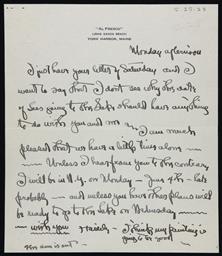 5-25-25
"AL FRESCO"
LONG SANDS BEACH
YORK HARBOR, MAINE
Monday afternoon
I just have your letter of Saturday and I
want to say that I don't see why the date
of going to the should have anything
to do with you and me I am much
pleased that we have a little time alone
Unless I hear from you to the contrary
I will be in N.Y. on Monday - June 4th - late
probably - and unless you have other plans will
be ready to go to the Lake on Wednesday
with you
I think my painting is
going to be good